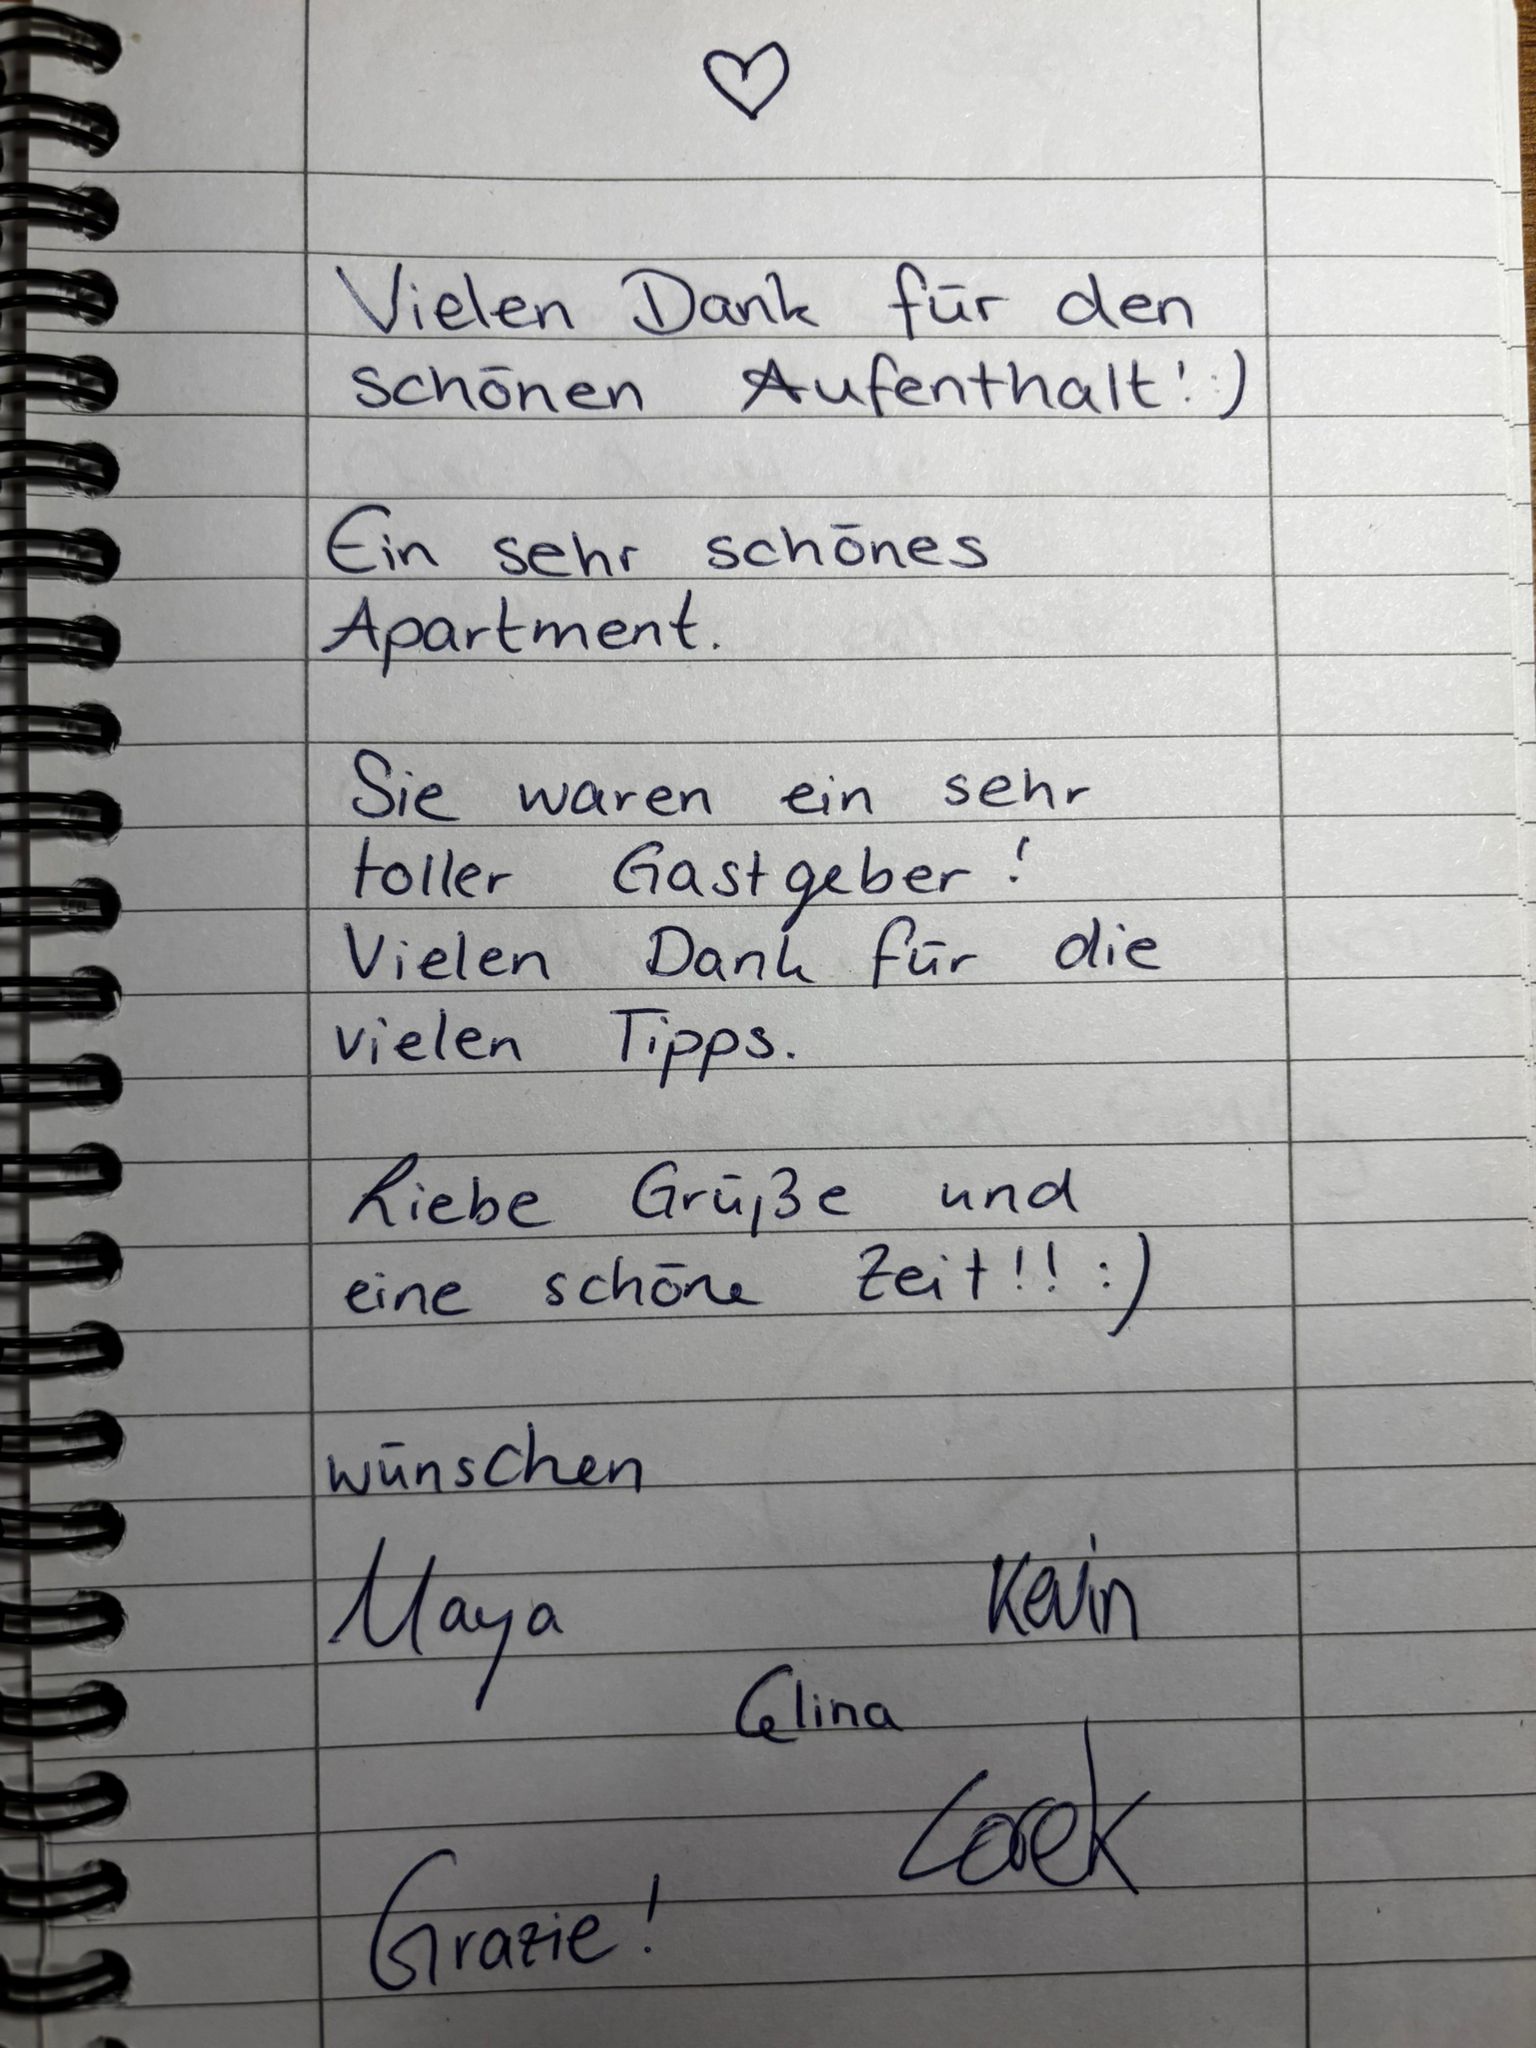 Vielen Dank für den
schönen Aufenthalt! :)
Ein sehr schönes
Apartment.
Sie waren ein sehr
toller Gastgeber!
Vielen Dank für die
vielen Tipps.
Liebe Grüße und
eine schöne Zeit!! :)
wünschen
Maya Kevin
Celina
Grazie!